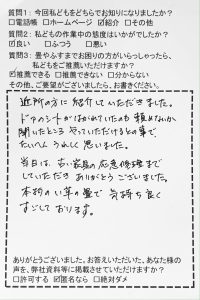 質問1：今回私どもをどちらでお知りになりましたか？
□電話帳 □ホームページ ☑紹介 □その他
質問2：私どもの作業中の態度はいかがでしたか？
☑良い □ふつう □悪い
質問3：畳やふすまでお困りの方がいらっしゃったら、
私どもをご推薦いただけますか？
☑推薦できる □推薦できない □分からない
その他、ご要望がございましたら、お書きください。
近所の方に紹介していただきました。
ドアのシートがはがれていたのも頼めないか
聞いたところ やっていただけるとの事で、
たいへんうれしく思いました。
当日は、古い家具の応急修理まで
していただき ありがとうございました。
本物のい草の畳で 気持ち良く
すごしております。
ありがとうございました。お答えいただいた、あなた様の
声を、弊社資料等に掲載させていただけますか？
□許可する ☑匿名なら □絶対ダメ